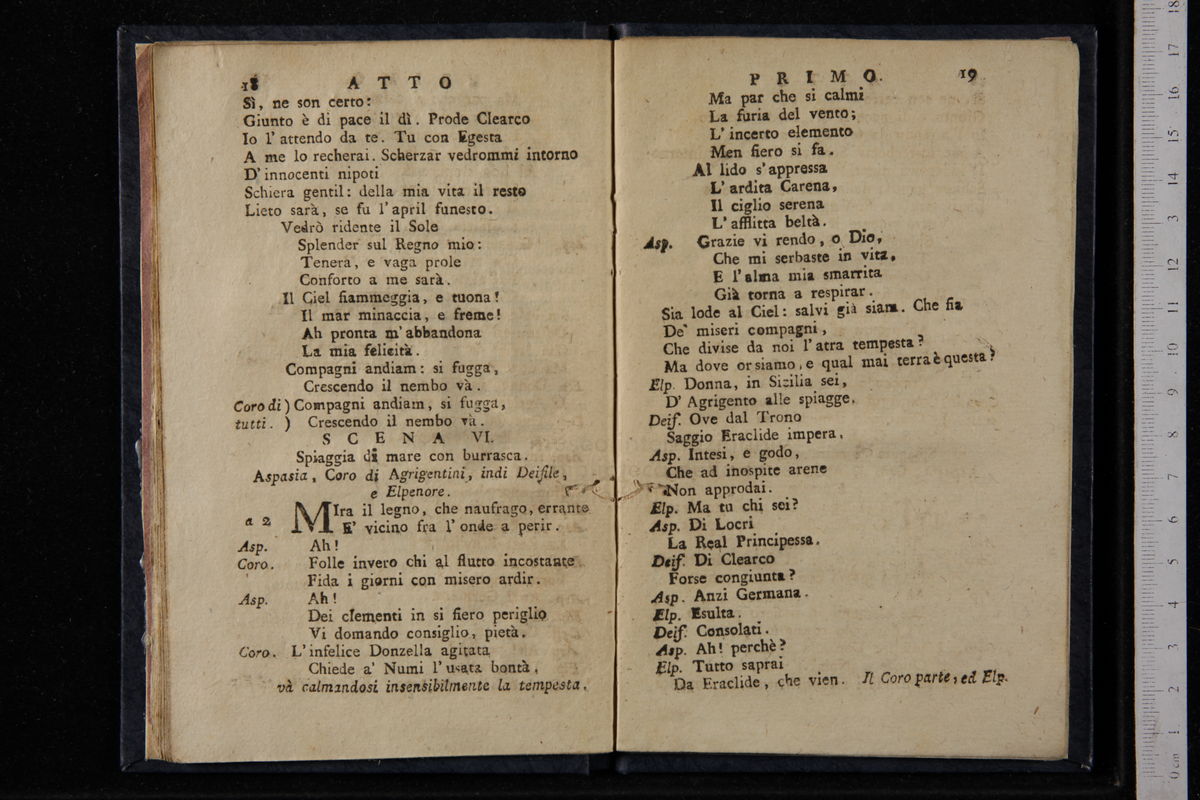 18 ATTO
Sì, ne son certo:
Giunto è di pace il dì. Prode Clearco
Io l'attendo da te. Tu con Egesta
A me lo recherai. Scherzar vedrommi intorno
D'innocenti nipoti
Schiera gentil: della mia vita il resto
Lieto sarà, se fu l'april funesto.
Vedrò ridente il Sole
Splender sul Regno mio:
Tenera, e vaga prole
Conforto a me sarà.
Il Ciel fiammeggia, e tuona!
Il mar minaccia, e freme!
Ah pronta m'abbandona
La mia felicità.
Compagni andiam: si fugga,
Crescendo il nembo và.
Coro di ) Compagni andiam, si fugga,
tutti. ) Crescendo il nembo và.
SCENA VI.
Spiaggia di mare con burrasca.
Aspasia, Coro di Agrigentini, indi Deifile,
e Elpenore.
a 2 MIra il legno, che naufrago, errante
E' vicino fra l'onde a perir.
Asp. Ah!
Coro. Folle invero chi al flutto incostante
Fida i giorni con misero ardir.
Asp. Ah!
Dei clementi in si fiero periglio
Vi domando consiglio, pietà.
Coro. L'infelice Donzella agitata
Chiede a' Numi l'usata bontà.
và calmandosi insensibilmente la tempesta.
PRIMO. 19
Ma par che si calmi
La furia del vento;
L'incerto elemento
Men fiero si fa.
Al lido s'appressa
L'ardita Carena,
Il ciglio serena
L'afflitta beltà.
Asp. Grazie vi rendo, o Dio,
Che mi serbaste in vita,
E l'alma mia smarrita
Già torna a respirar.
Sia lode al Ciel: salvi già siam. Che fia
De' miseri compagni,
Che divise da noi l'atra tempesta?
Ma dove or siamo, e qual mai terra è questa?
Elp. Donna, in Sizilia sei,
D'Agrigento alle spiagge.
Deif. Ove dal Trono
Saggio Eraclide impera.
Asp. Intesi, e godo,
Che ad inospite arene
Non approdai.
Elp. Ma tu chi sei?
Asp. Di Locri
La Real Principessa.
Deif. Di Clearco
Forse congiunta?
Asp. Anzi Germana.
Elp. Esulta.
Deif. Consolati.
Asp. Ah! perchè?
Elp. Tutto saprai
Da Eraclide, che vien. Il Coro parte, ed Elp.